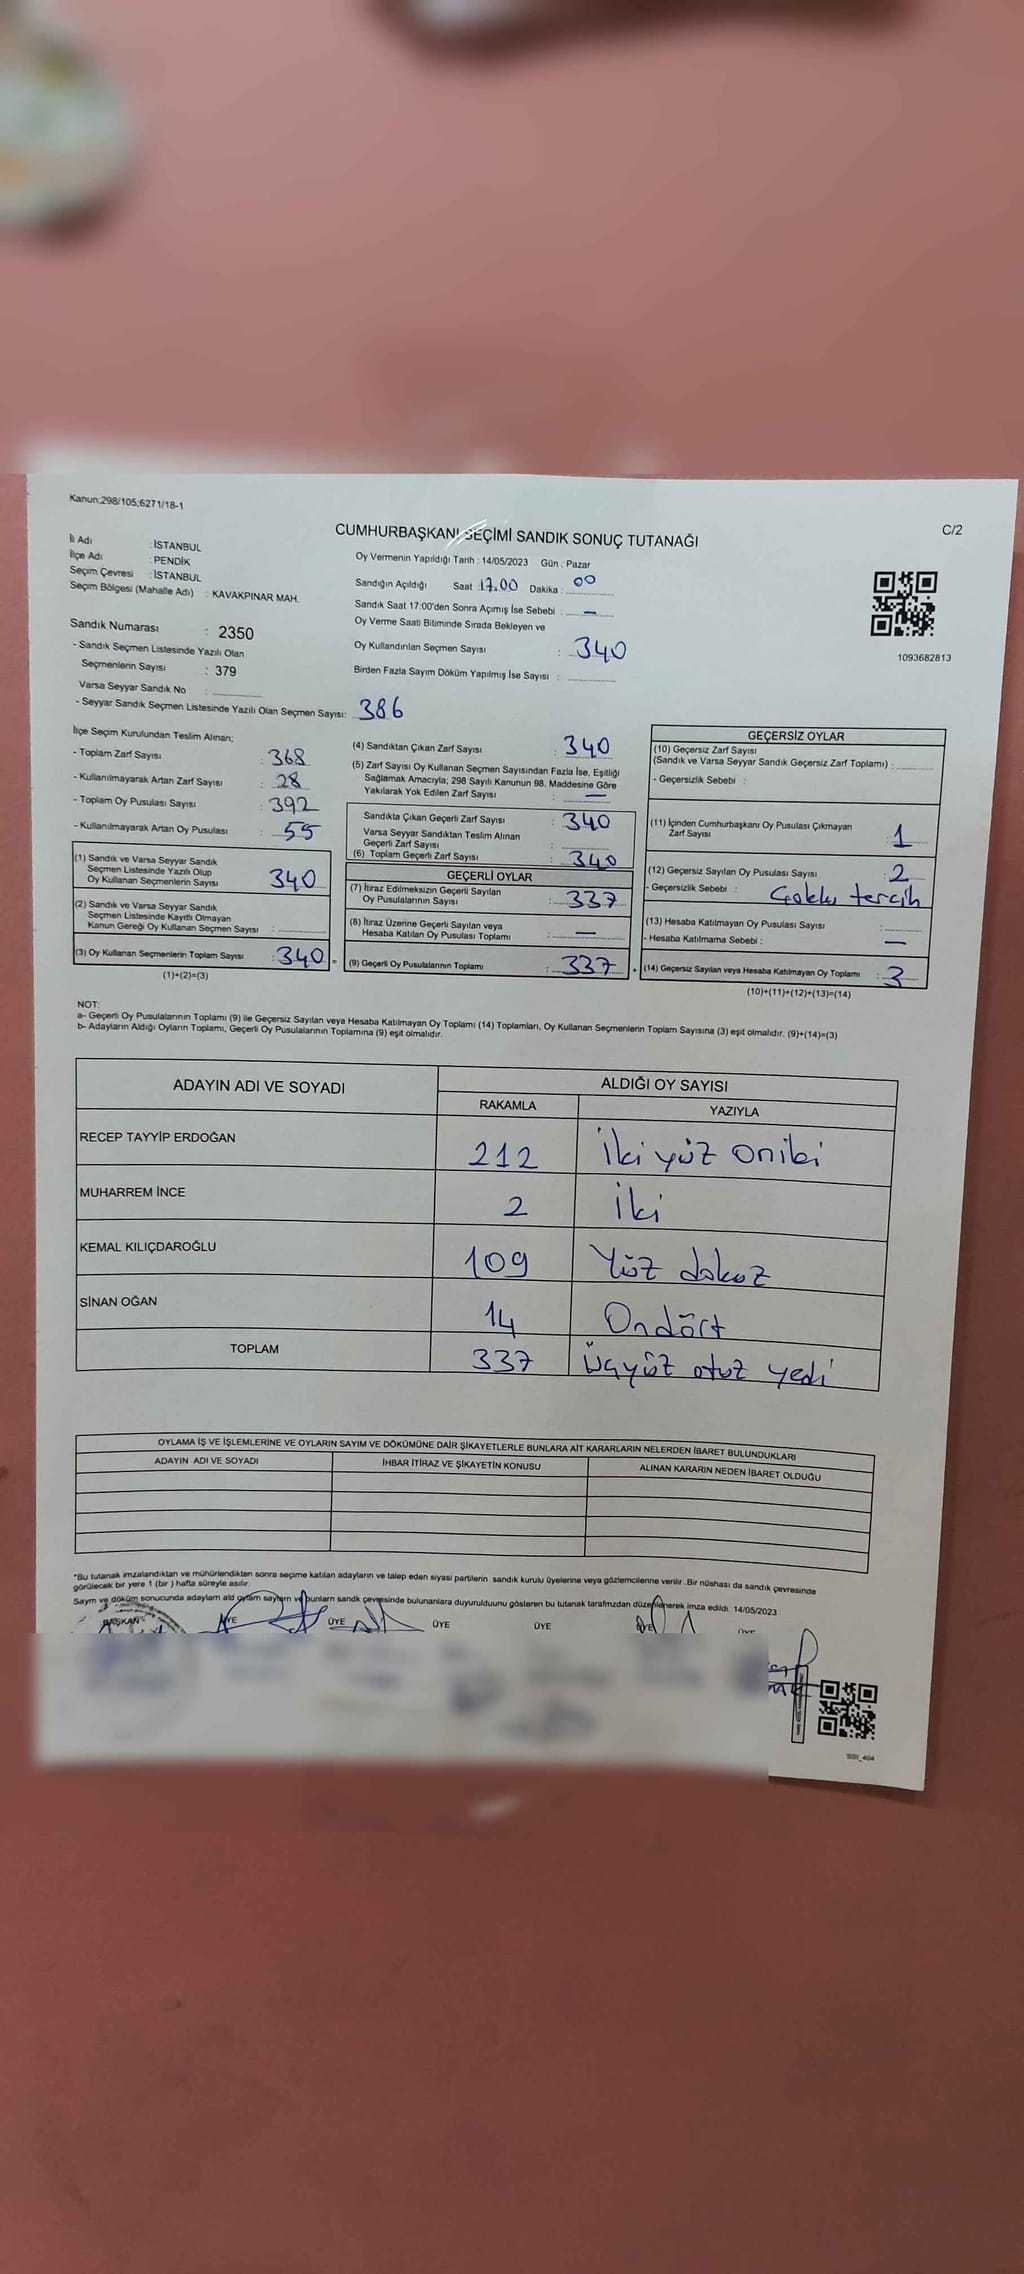 Kanun;298/105;6271/18-1
C/2
CUMHURBAŞKANI SEÇİMİ SANDIK SONUÇ TUTANAĞI
İl Adı : İSTANBUL
İlçe Adı : PENDİK
Seçim Çevresi : İSTANBUL
Seçim Bölgesi (Mahalle Adı) : KAVAKPINAR MAH.
Oy Vermenin Yapıldığı Tarih : 14/05/2023 Gün : Pazar
Sandığın Açıldığı Saat : 17.00 Dakika : 00
Sandık Saat 17:00'den Sonra Açımış İse Sebebi : —
Oy Verme Saati Bitiminde Sırada Bekleyen ve
Oy Kullandırılan Seçmen Sayısı : 340
Birden Fazla Sayım Döküm Yapılmış İse Sayısı :
1093682813
Sandık Numarası : 2350
- Sandık Seçmen Listesinde Yazılı Olan
Seçmenlerin Sayısı : 379
Varsa Seyyar Sandık No :
- Seyyar Sandık Seçmen Listesinde Yazılı Olan Seçmen Sayısı: 386
İlçe Seçim Kurulundan Teslim Alınan;
- Toplam Zarf Sayısı : 368
- Kullanılmayarak Artan Zarf Sayısı : 28
- Toplam Oy Pusulası Sayısı : 392
- Kullanılmayarak Artan Oy Pusulası : 55
(1) Sandık ve Varsa Seyyar Sandık
Seçmen Listesinde Yazılı Olup
Oy Kullanan Seçmenlerin Sayısı : 340
(2) Sandık ve Varsa Seyyar Sandık
Seçmen Listesinde Kayıtlı Olmayan
Kanun Gereği Oy Kullanan Seçmen Sayısı :
(3) Oy Kullanan Seçmenlerin Toplam Sayısı : 340 =
(1)+(2)=(3)
(4) Sandıktan Çıkan Zarf Sayısı : 340
(5) Zarf Sayısı Oy Kullanan Seçmen Sayısından Fazla İse, Eşitliği
Sağlamak Amacıyla; 298 Sayılı Kanunun 98. Maddesine Göre
Yakılarak Yok Edilen Zarf Sayısı : —
Sandıkta Çıkan Geçerli Zarf Sayısı : 340
Varsa Seyyar Sandıktan Teslim Alınan
Geçerli Zarf Sayısı :
(6) Toplam Geçerli Zarf Sayısı : 340
GEÇERLİ OYLAR
(7) İtiraz Edilmeksizin Geçerli Sayılan
Oy Pusulalarının Sayısı : 337
(8) İtiraz Üzerine Geçerli Sayılan veya
Hesaba Katılan Oy Pusulası Toplamı : —
(9) Geçerli Oy Pusulalarının Toplamı : 337 +
GEÇERSİZ OYLAR
(10) Geçersiz Zarf Sayısı
(Sandık ve Varsa Seyyar Sandık Geçersiz Zarf Toplamı) :
- Geçersizlik Sebebi :
(11) İçinden Cumhurbaşkanı Oy Pusulası Çıkmayan
Zarf Sayısı : 1
(12) Geçersiz Sayılan Oy Pusulası Sayısı : 2
- Geçersizlik Sebebi : Çoklu tercih
(13) Hesaba Katılmayan Oy Pusulası Sayısı :
- Hesaba Katılmama Sebebi : —
(14) Geçersiz Sayılan veya Hesaba Katılmayan Oy Toplamı : 3
(10)+(11)+(12)+(13)=(14)
NOT:
a- Geçerli Oy Pusulalarının Toplamı (9) ile Geçersiz Sayılan veya Hesaba Katılmayan Oy Toplamı (14) Toplamları, Oy Kullanan Seçmenlerin Toplam Sayısına (3) eşit olmalıdır. (9)+(14)=(3)
b- Adayların Aldığı Oyların Toplamı, Geçerli Oy Pusulalarının Toplamına (9) eşit olmalıdır.
ADAYIN ADI VE SOYADI ALDIĞI OY SAYISI
RAKAMLA YAZIYLA
RECEP TAYYİP ERDOĞAN 212 İki yüz oniki
MUHARREM İNCE 2 İki
KEMAL KILIÇDAROĞLU 109 Yüz dokuz
SİNAN OĞAN 14 Ondört
TOPLAM 337 Üçyüz otuz yedi
OYLAMA İŞ VE İŞLEMLERİNE VE OYLARIN SAYIM VE DÖKÜMÜNE DAİR ŞİKAYETLERLE BUNLARA AİT KARARLARIN NELERDEN İBARET BULUNDUKLARI
ADAYIN ADI VE SOYADI İHBAR İTİRAZ VE ŞİKAYETİN KONUSU ALINAN KARARIN NEDEN İBARET OLDUĞU
*Bu tutanak imzalandıktan ve mühürlendikten sonra seçime katılan adayların ve talep eden siyasi partilerin sandık kurulu üyelerine veya gözlemcilerine verilir .Bir nüshası da sandık çevresinde
görülecek bir yere 1 (bir ) hafta süreyle asılır.
Sayım ve döküm sonucunda adayların ald oyların sayların ve bunların sandk çevesinde bulunanlara duyurulduunu gösteren bu tutanak tarafmzdan düzenlenerek imza edildi. 14/05/2023
BAŞKAN ÜYE ÜYE ÜYE ÜYE ÜYE
SSI_404